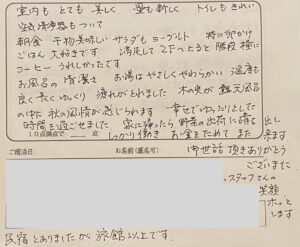 室内も とても 美しく 畳も新しく トイレもきれい
空気清浄器もついて
朝食 干物美味しい サラダもヨーグルト 特に卵かけ
ごはん大好きです 満足して2Fへ上ると 階段 横に
コーヒーうれしかったです
お風呂の清潔さ お湯はやさしくやわらかい 温度も
良く長くゆっくり 疲れがとれました 木の実が 露天風呂
の中に 秋の風情が感じられます 幸せでゆったりとした
時間を過ごせました 家に帰ったら 野菜の出荷に精を出し
１００点満点で 点 しっかり働き お金をためて また 来ます
ご宿泊日 お名前(匿名可) 御世話 頂きありがとう
ございました
スタッフさんの
笑顔
ホッと
します
民宿とありましたが 旅館以上です。